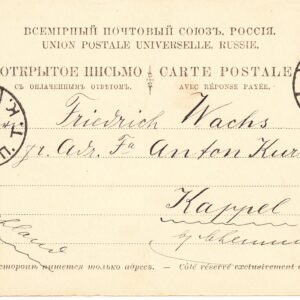 ВСЕМІРНЫЙ ПОЧТОВЫЙ СОЮЗЪ. РОССІЯ.
UNION POSTALE UNIVERSELLE. RUSSIE.
ОТКРЫТОЕ ПИСЬМО CARTE POSTALE
СЪ ОПЛАЧЕННЫМЪ ОТВѢТОМЪ. AVEC RÉPONSE PAYÉE.
Friedrich Wachs
Adr. Fa Anton
Kappel
пишется только адресъ. — Côté réservé exclusivement